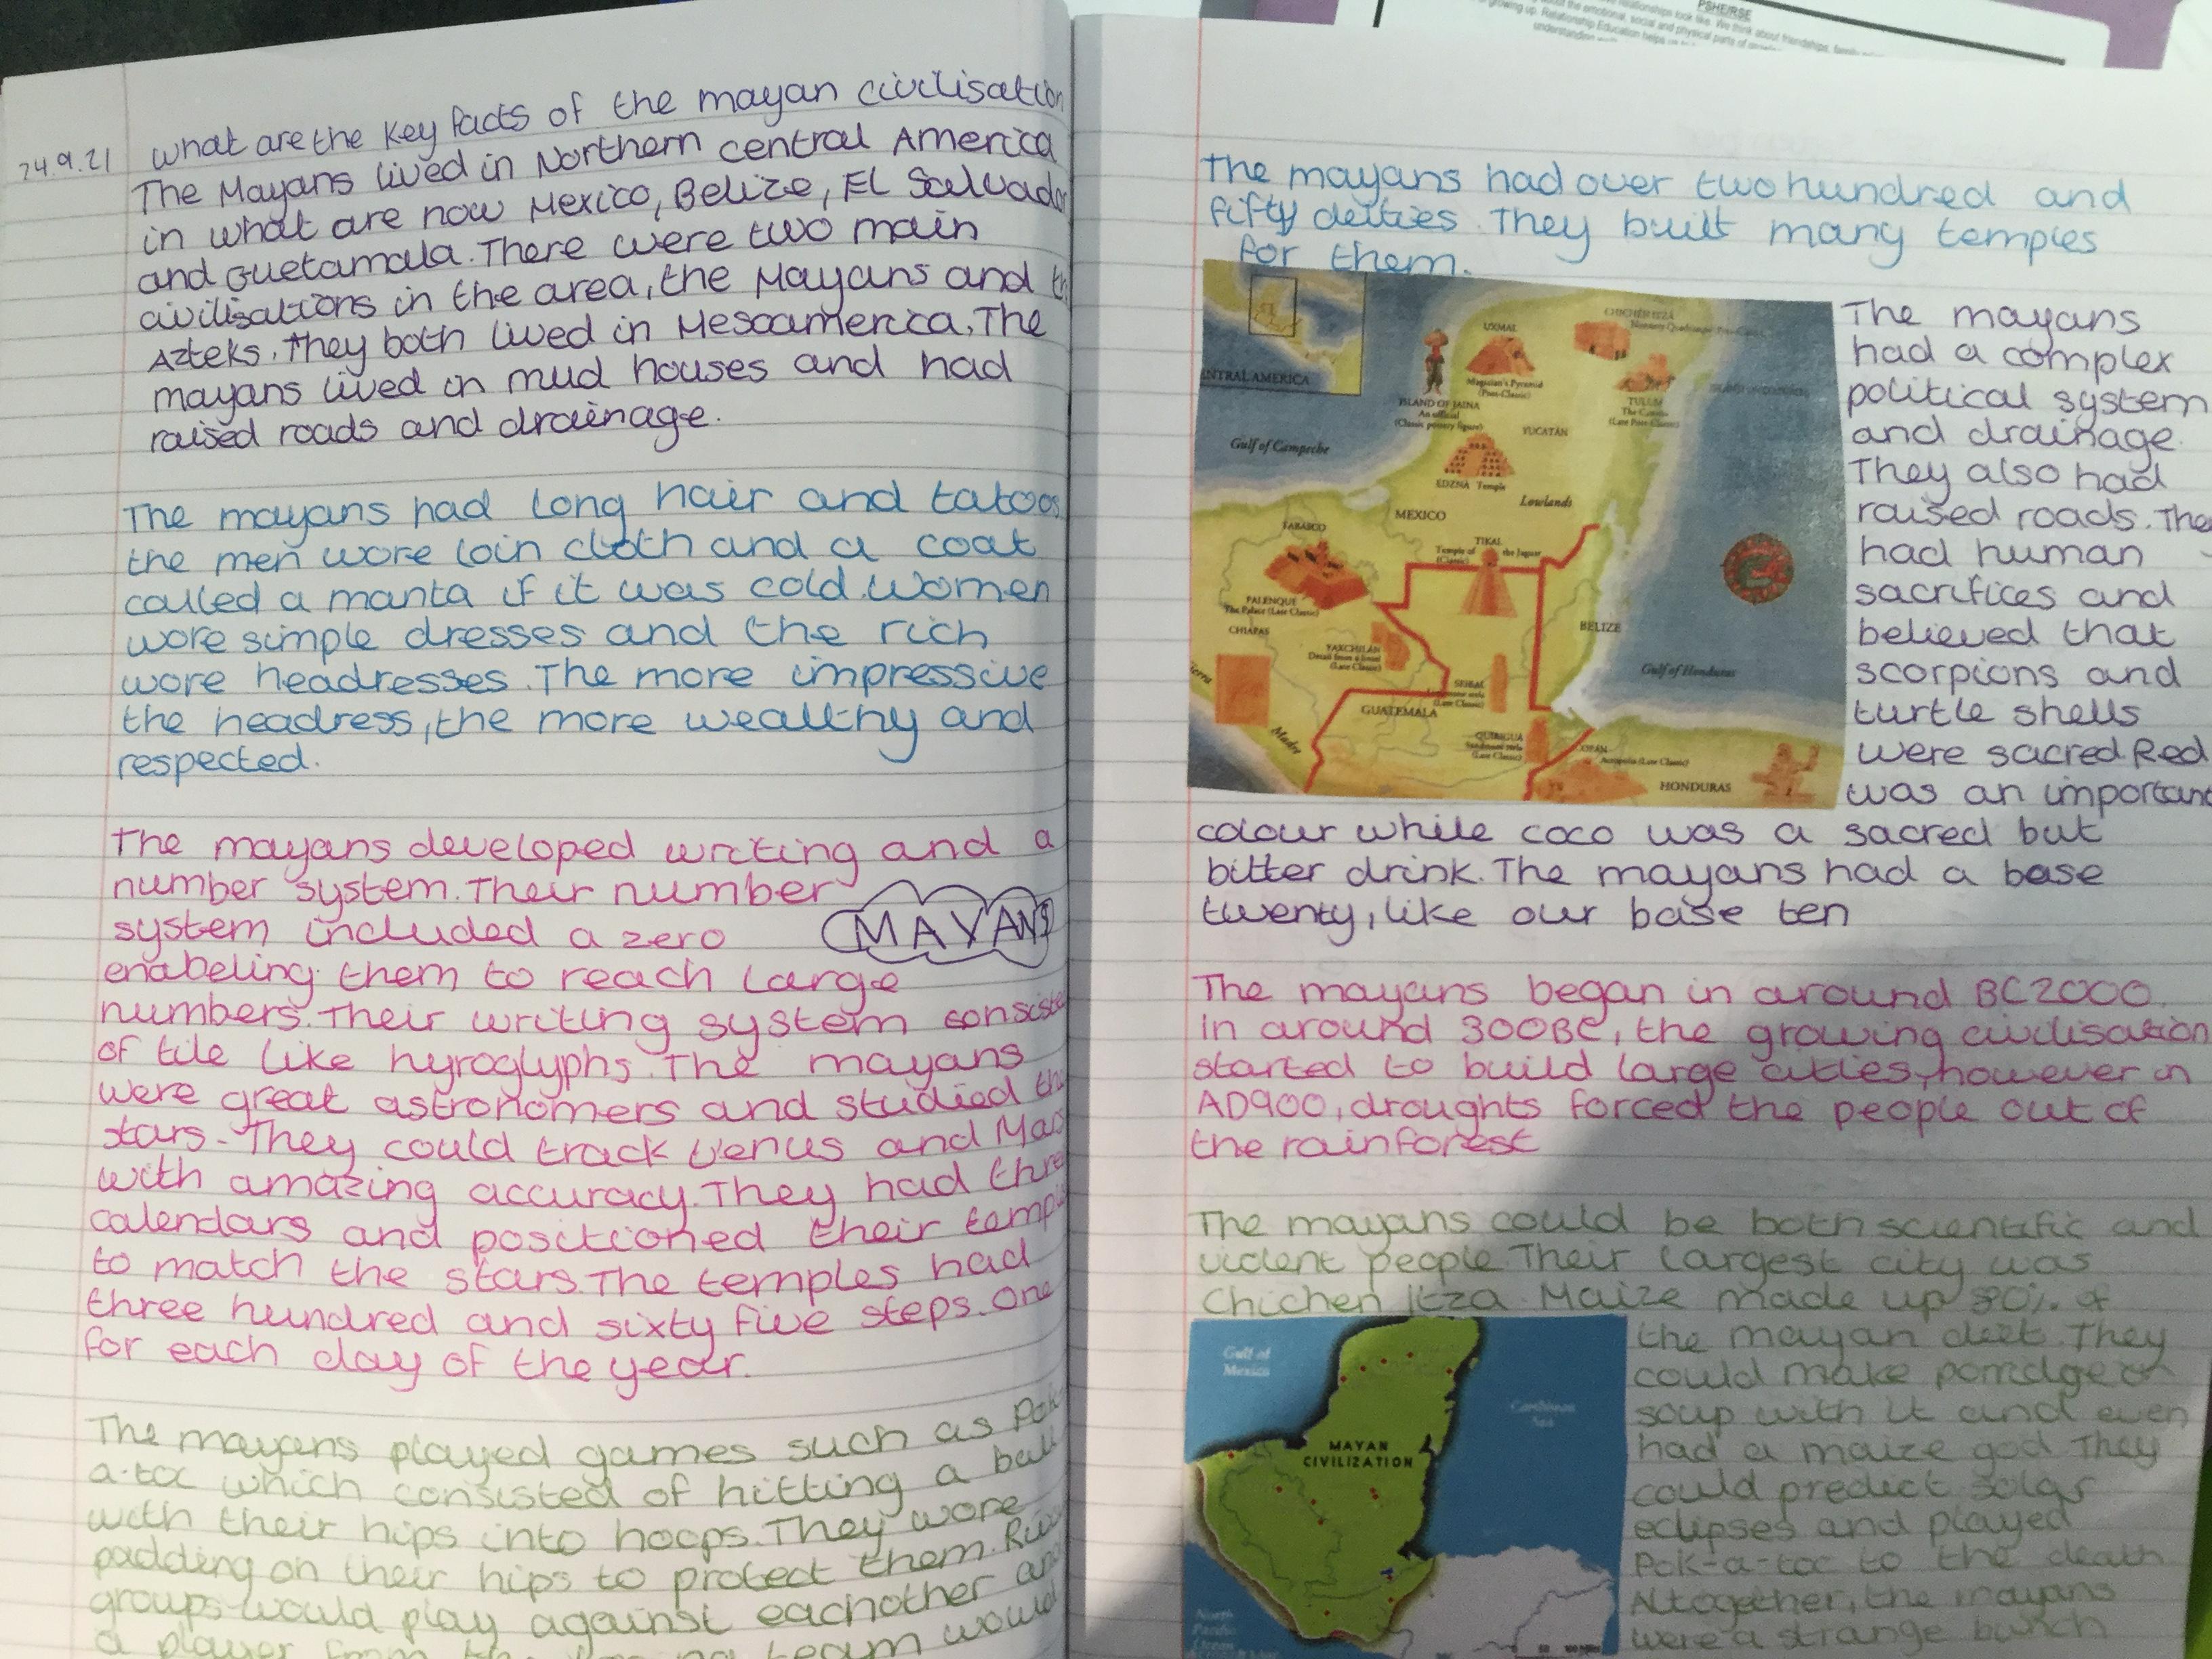 24.9.21
What are the key facts of the mayan civilisation
The Mayans lived in Northern central America
in what are now Mexico, Belize, El Salvador
and Guetamala. There were two main
civilisations in the area, the Mayans and th
Azteks. They both lived in Mesoamerica. The
mayans lived in mud houses and had
raised roads and drainage.
The mayans had long hair and tatoos
the men wore loin cloth and a coat
called a manta if it was cold. Women
wore simple dresses and the rich
wore headresses. The more impressive
the headress, the more wealthy and
respected.
The mayans developed writing and a
number system. Their number
system included a zero
MAYANS
enabeling them to reach large
numbers. Their writing system consiste
of tile like hyroglyphs. The mayans
were great astronomers and studied the
stars. They could track Venus and Mars
with amazing accuracy. They had three
calendars and positioned their temple
to match the stars. The temples had
three hundred and sixty five steps. One
for each day of the year.
The mayans played games such as Pok
a-toc which consisted of hitting a ball
with their hips into hoops. They wore
padding on their hips to protect them. Rival
groups would play against eachother and
a player from the team would
PSHE/RSE
understanding
The mayans had over two hundred and
fifty deities. They built many temples
for them.
CENTRAL AMERICA
UXMAL
Magician's Pyramid
(Post-Classic)
CHICHÉN ITZÁ
ISLAND OF JAINA
An official
(Classic pottery figure)
TULUM
The Castle
(Late Post-Classic)
YUCATÁN
Gulf of Campeche
EDZNÁ Temple
Lowlands
MEXICO
TABASCO
TIKAL
Temple of the Jaguar
(Classic)
PALENQUE
The Palace (Late Classic)
CHIAPAS
BELIZE
YAXCHILÁN
(Late Classic)
Gulf of Honduras
SEIBAL
(Late Classic)
Sierra
Madre
GUATEMALA
QUIRIGUÁ
(Late Classic)
COPÁN
Acropolis (Late Classic)
HONDURAS
The mayans
had a complex
political system
and drainage.
They also had
raised roads. They
had human
sacrifices and
believed that
scorpions and
turtle shells
were sacred. Red
was an important
colour while coco was a sacred but
bitter drink. The mayans had a base
twenty, like our base ten
The mayans began in around BC2000.
in around 300BC, the growing civilisation
started to build large cities, however in
AD900, droughts forced the people out of
the rainforest
The mayans could be both scientific and
violent people. Their largest city was
Chichen Itza. Maize made up 80% of
the mayan diet. They
could make porridge or
soup with it and even
had a maize god. They
could predict solar
eclipses and played
Pok-a-toc to the death
Altogether, the mayans
were a strange bunch
Gulf of
Mexico
Caribbean
Sea
MAYAN
CIVILIZATION
North
Pacific
Ocean